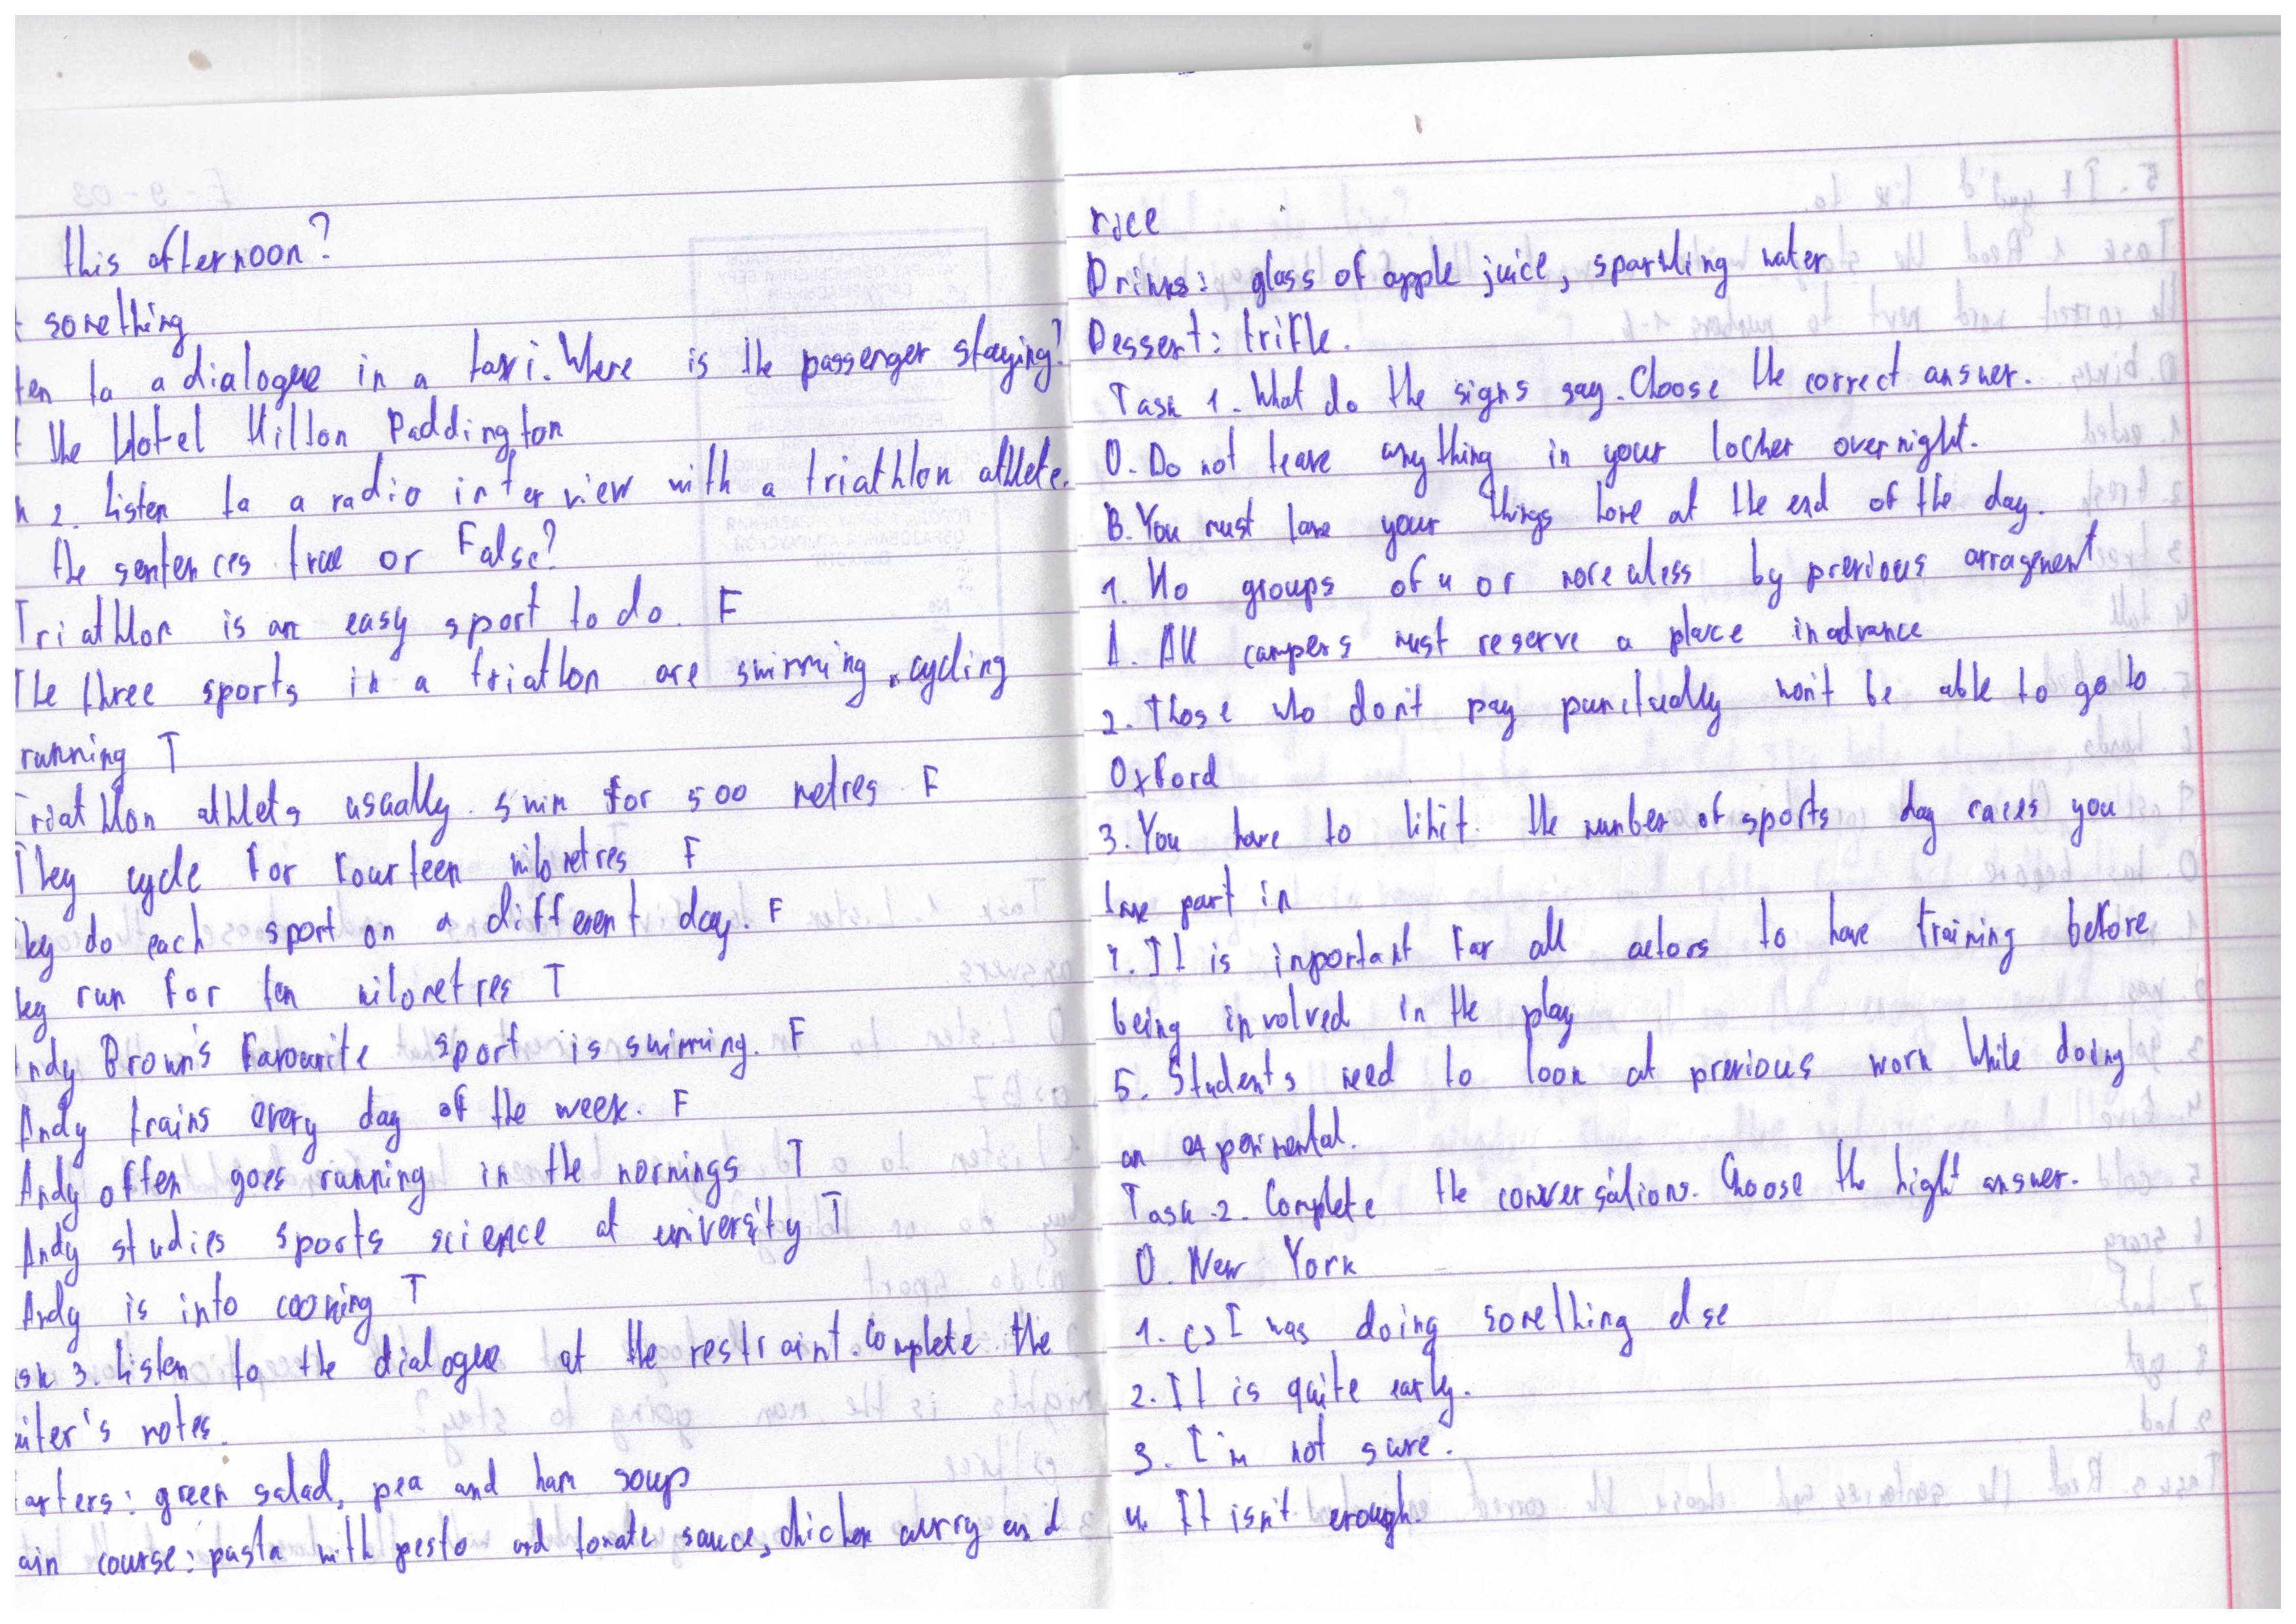 this afternoon?
something
ten to a dialogue in a taxi. Where is the passenger staying?
the Hotel Hilton Paddington
2. Listen to a radio interview with a triathlon athlete.
the sentences true or False?
Triathlon is an easy sport to do. F
The three sports in a triatlon are swimming, cycling
running T
Triathlon athlets usually swim for 500 metres F
They cycle for fourteen kilometres F
hey do each sport on a different day. F
hey run for ten kilometres T
Andy Brown's Favourite sport is swimming. F
Andy trains every day of the week. F
Andy often goes running in the mornings T
Andy studies sports science at university T
Andy is into cooking T
sk 3. Listen to the dialogue at the restraint. Complete the
aiter's notes.
arters: green salad, pea and ham soup
ain course: pasta with pesto and tomate sauce, chicken curry and
rice
Drinks: glass of apple juice, sparkling water
Dessert: trifle.
Task 1. What do the signs say. Choose the correct answer.
0. Do not leave anything in your locker overnight.
B. You must take your things home at the end of the day.
1. No groups of 4 or more unless by previous arragement
A. All campers must reserve a place in advance
2. Those who don't pay punctually won't be able to go to
Oxford
3. You have to limit the number of sports day races you
take part in
4. It is important for all actors to have training before
being involved in the play
5. Students need to look at previous work while doing
an experimental.
Task 2. Complete the conversations. Choose the hight answer.
0. New York
1. c) I was doing something else
2. It is quite early.
3. I'm not sure.
4. It isn't enough.